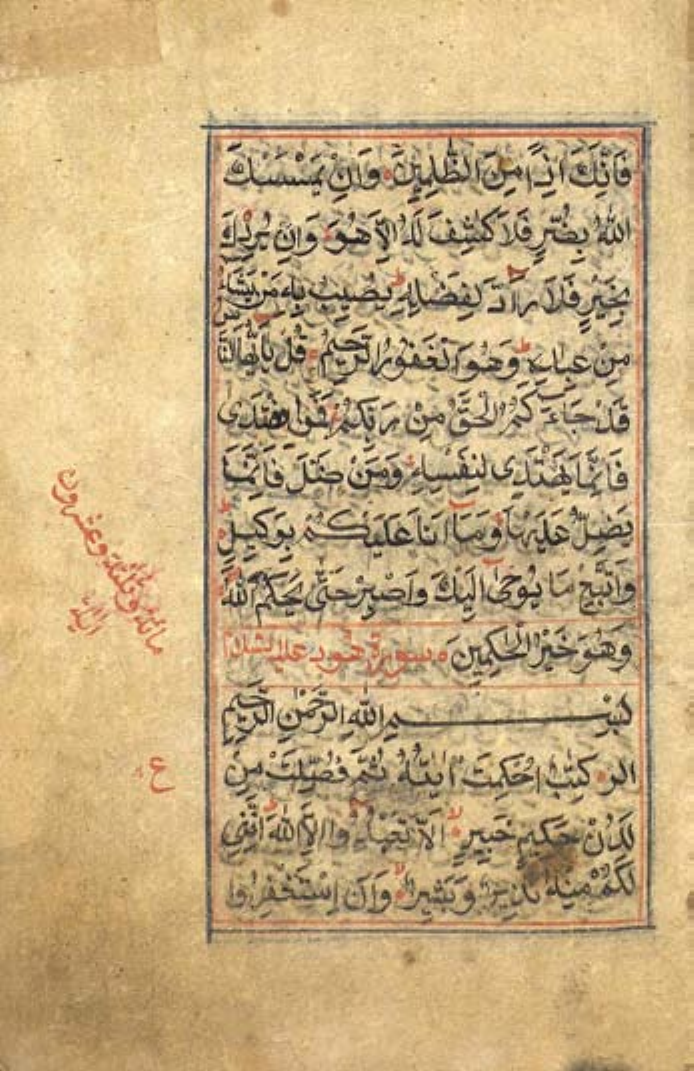 فَاِنَّكَ اِذًا مِنَ الظّٰلِمِيْنَ وَاِنْ يَمْسَسْكَ
اللّٰهُ بِضُرٍّ فَلَا كَاشِفَ لَهُ اِلَّا هُوَ وَاِنْ يُرِدْكَ
بِخَيْرٍ فَلَا رَآدَّ لِفَضْلِهٖ يُصِيْبُ بِهٖ مَنْ يَّشَآءُ
مِنْ عِبَادِهٖ وَهُوَ الْغَفُوْرُ الرَّحِيْمُ قُلْ يٰاَيُّهَا النَّاسُ
قَدْ جَآءَكُمُ الْحَقُّ مِنْ رَبِّكُمْ فَمَنِ اهْتَدٰى
فَاِنَّمَا يَهْتَدِى لِنَفْسِهٖ وَمَنْ ضَلَّ فَاِنَّمَا
يَضِلُّ عَلَيْهَا وَمَآ اَنَا عَلَيْكُمْ بِوَكِيْلٍ
وَاتَّبِعْ مَا يُوْحٰى اِلَيْكَ وَاصْبِرْ حَتّٰى يَحْكُمَ اللّٰهُ
وَهُوَ خَيْرُ الْحٰكِمِيْنَ سورة هود عليه السلام
بِسْمِ اللّٰهِ الرَّحْمٰنِ الرَّحِيْمِ
الر كِتٰبٌ اُحْكِمَتْ اٰيٰتُهُ ثُمَّ فُصِّلَتْ مِنْ
لَدُنْ حَكِيْمٍ خَبِيْرٍ اَلَّا تَعْبُدُوْا اِلَّا اللّٰهَ اِنَّنِى
لَكُمْ مِنْهُ نَذِيْرٌ وَبَشِيْرٌ وَاَنِ اسْتَغْفِرُوْا
مائة وثلثة وعشرون
اية
ع